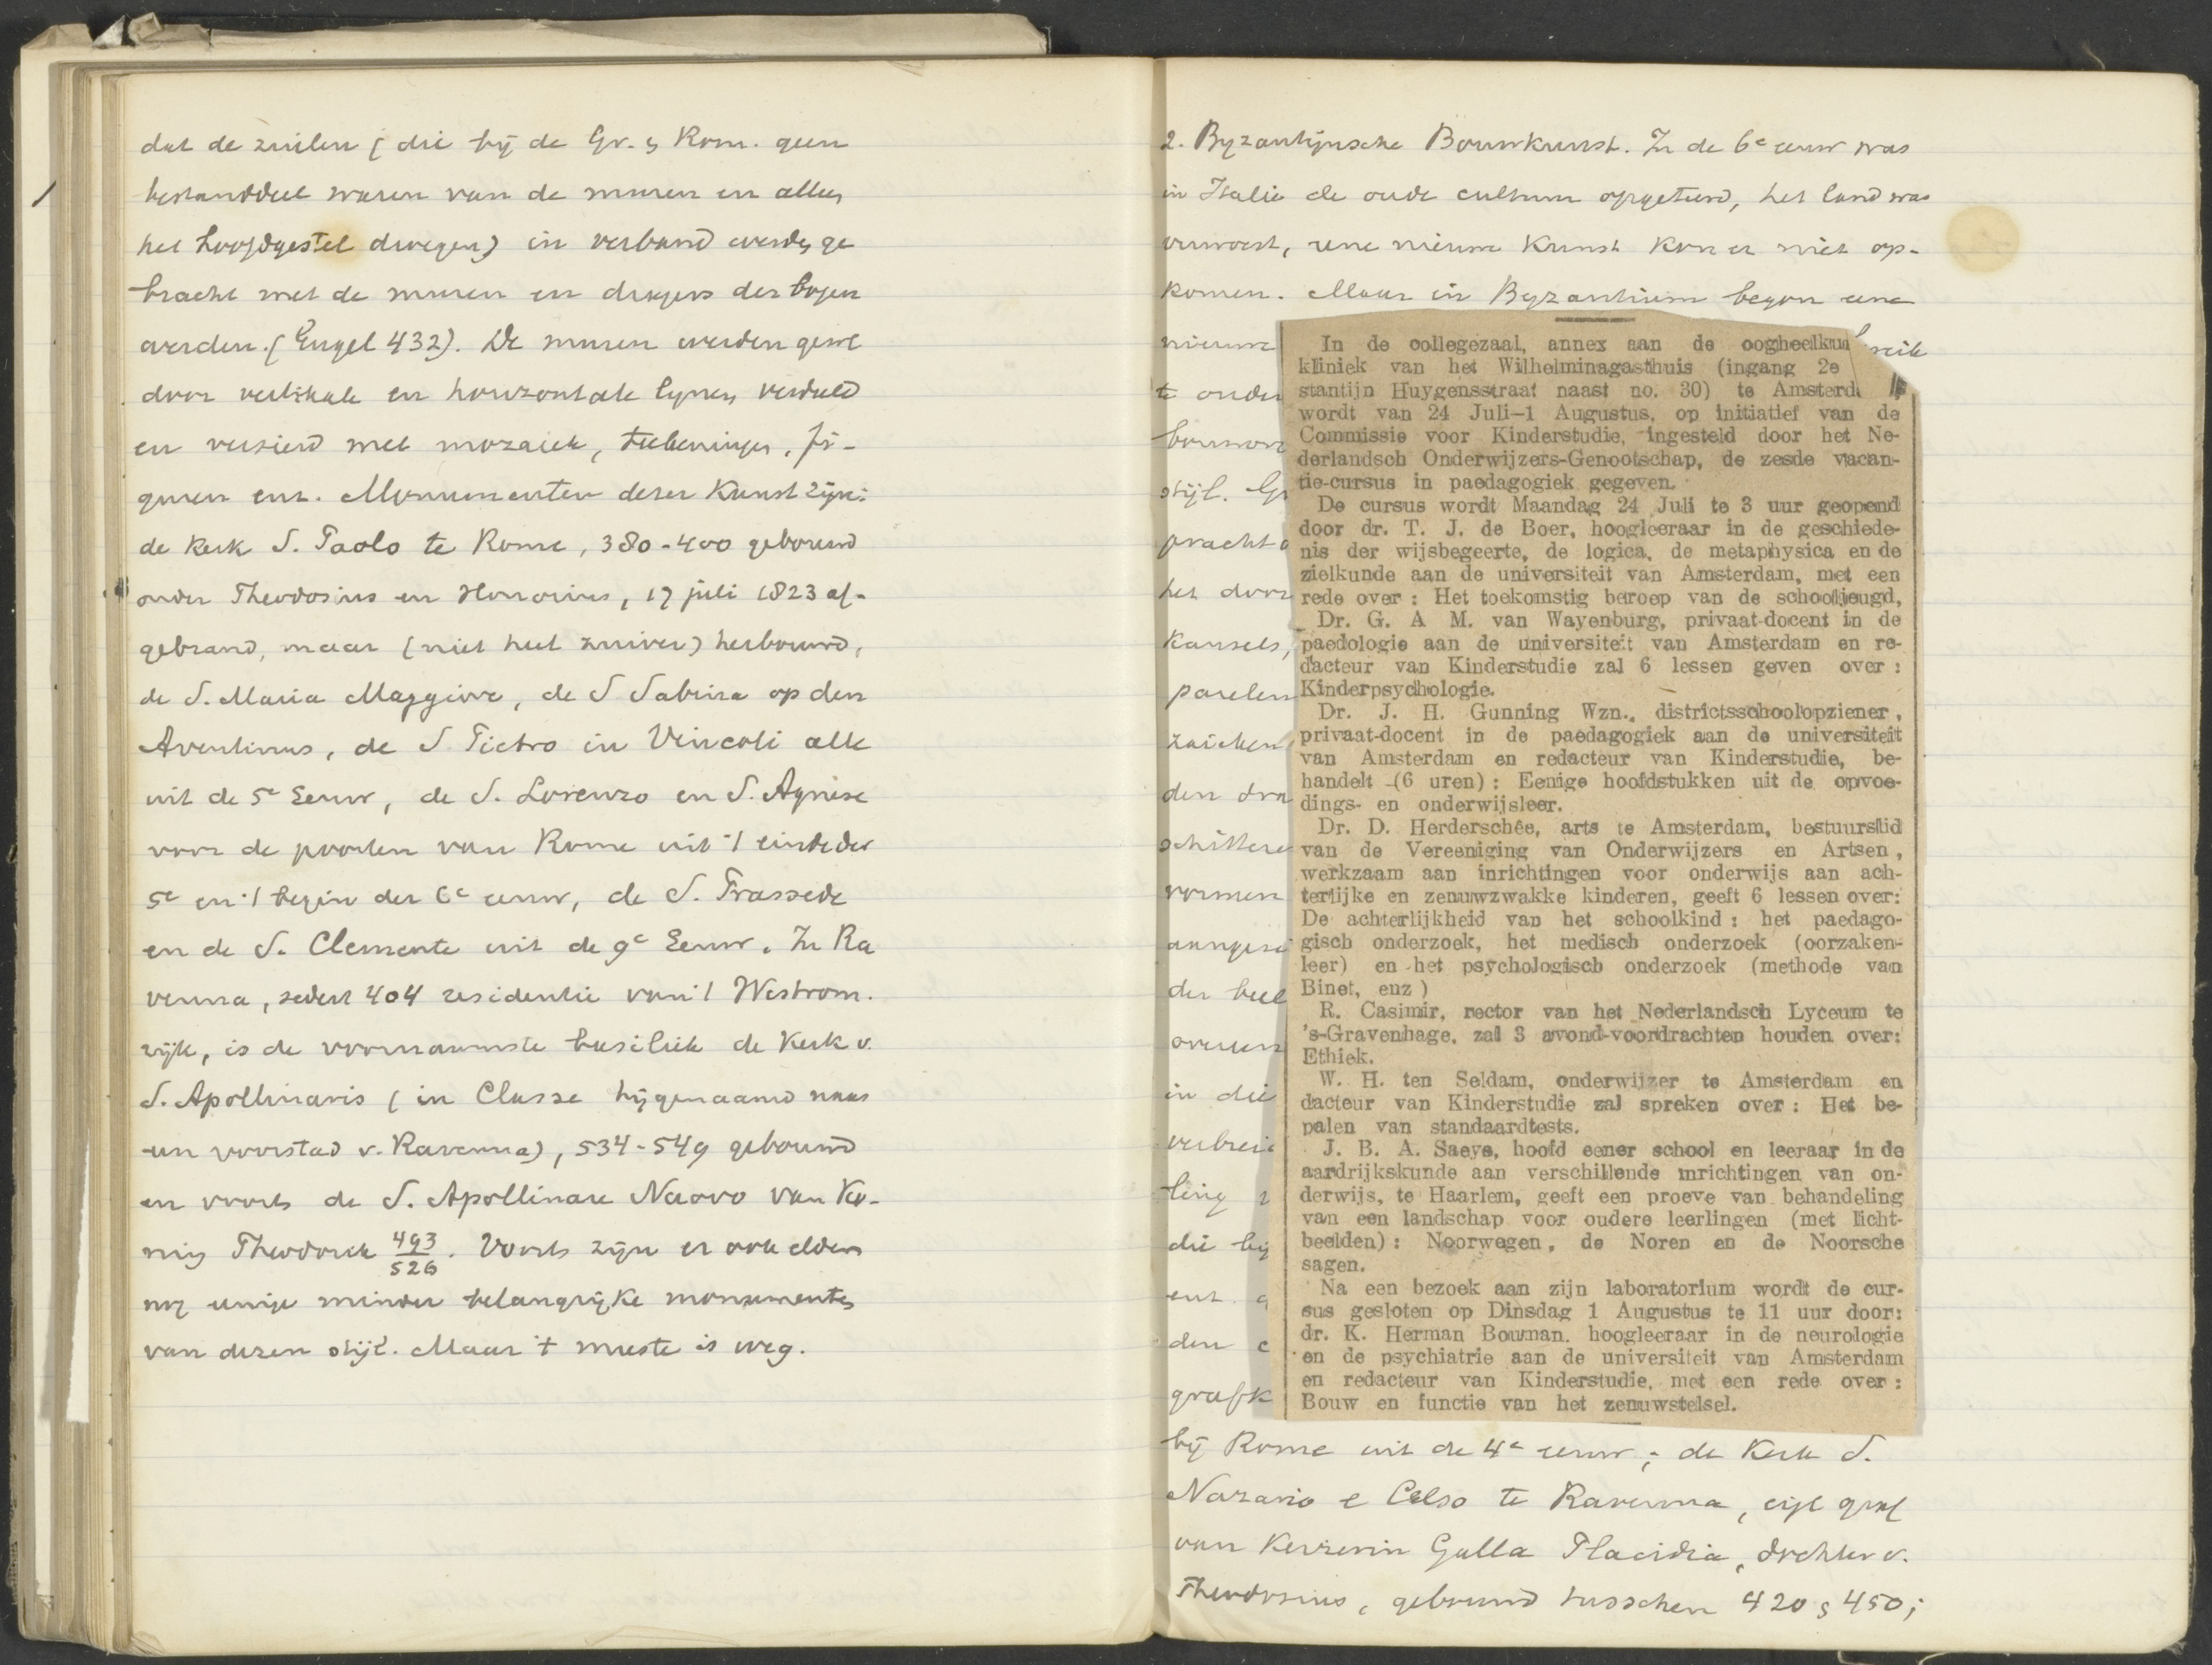 dat de zuilen (die bij de Gr. & Rom. geen
bestanddeel waren van de muren en alleen
het hoofdgestel droegen) in verband werden ge
bracht met de muren en dragers der bogen
werden. (Engel 432). De muren werden
door vertikale en horizontale lijnen verdeeld
en versierd met mozaiek, teekeningen, fi-
guren enz. Monumenten dezer Kunst zijn:
de Kerk S. Paolo te Rome, 380-400 gebouwd
onder Theodosius en Honorius, 17 juli 1823 af-
gebrand, maar (niet heel zuiver) herbouwd,
de S. Maria Maggiore, de S Sabina op den
Aventinus, de S. Pietro in Vincoli alle
uit de 5e Eeuw, de S. Lorenzo en S. Agnese
voor de poorten van Rome uit 't einde der
5e en 't begin der 6e eeuw, de S. Prassede
en de S. Clemente uit de 9e Eeuw. In Ra
venna, sedert 404 residentie van 't Westrom.
rijk, is de voornaamste basiliek de Kerk v.
S. Apollinaris (in Classe bijgenaamd naar
een voorstad v. Ravenna), 534-549 gebouwd
en voorts de S. Apollinare Nuovo van Ko-
ning Theodorik 493
526. Voorts zijn er ook elders
nog eenige minder belangrijke monumenten
van dezen stijl. Maar 't meeste is weg.
2. Byzantijnsche Bouwkunst. In de 6e eeuw was
in Italie de oude cultuur opgeteerd, het land was
verwoest, eene nieuwe Kunst kon er niet op-
komen. Maar in Byzantium begon eene
nieuwe
te onder
bouwon
stijl. Gr
pracht
het door
Kansels,
parelen
zuiken
den dra
schittere
vormen
aangeri
der beel
overeen
in die
verbrei
ling
die bij
enz.
den
grafk
In de collegezaal, annex aan de oogheelkun
kliniek van het Wilhelminagasthuis (ingang 2e
stantijn Huygensstraat naast no. 30) te Amsterd
wordt van 24 Juli–1 Augustus, op initiatief van de
Commissie voor Kinderstudie, ingesteld door het Ne-
derlandsch Onderwijzers-Genootschap, de zesde vacan-
tie-cursus in paedagogiek gegeven.
De cursus wordt Maandag 24 Juli te 3 uur geopend
door dr. T. J. de Boer, hoogleeraar in de geschiede-
nis der wijsbegeerte, de logica, de metaphysica en de
zielkunde aan de universiteit van Amsterdam, met een
rede over : Het toekomstig beroep van de schooljeugd,
Dr. G. A M. van Wayenburg, privaat-docent in de
paedologie aan de universiteit van Amsterdam en re-
dacteur van Kinderstudie zal 6 lessen geven over :
Kinderpsychologie.
Dr. J. H. Gunning Wzn., districtsschoolopziener,
privaat-docent in de paedagogiek aan de universiteit
van Amsterdam en redacteur van Kinderstudie, be-
handelt (6 uren) : Eenige hoofdstukken uit de opvoe-
dings- en onderwijsleer.
Dr. D. Herderschêe, arts te Amsterdam, bestuurslid
van de Vereeniging van Onderwijzers en Artsen,
werkzaam aan inrichtingen voor onderwijs aan ach-
terlijke en zenuwzwakke kinderen, geeft 6 lessen over:
De achterlijkheid van het schoolkind : het paedago-
gisch onderzoek, het medisch onderzoek (oorzaken-
leer) en het psychologisch onderzoek (methode van
Binet, enz )
R. Casimir, rector van het Nederlandsch Lyceum te
's-Gravenhage, zal 3 avond-voordrachten houden over:
Ethiek.
W. H. ten Seldam, onderwijzer te Amsterdam en
dacteur van Kinderstudie zal spreken over : Het be-
palen van standaardtests.
J. B. A. Saeys, hoofd eener school en leeraar in de
aardrijkskunde aan verschillende inrichtingen van on-
derwijs, te Haarlem, geeft een proeve van behandeling
van een landschap voor oudere leerlingen (met licht-
beelden) : Noorwegen, de Noren en de Noorsche
sagen.
Na een bezoek aan zijn laboratorium wordt de cur-
sus gesloten op Dinsdag 1 Augustus te 11 uur door:
dr. K. Herman Bouman. hoogleeraar in de neurologie
en de psychiatrie aan de universiteit van Amsterdam
en redacteur van Kinderstudie, met een rede over :
Bouw en functie van het zenuwstelsel.
bij Rome uit de 4e eeuw; de Kerk S.
Nazario e Celso te Ravenna, eigl graf
van Keizerin Galla Placidia, dochter v.
Theodosius, gebouwd tusschen 420 & 450;